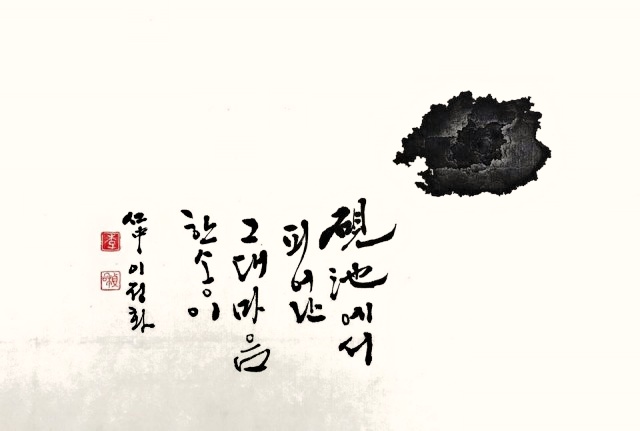 硯池에서
피어난
그대마음
한송이
仁中 이정화